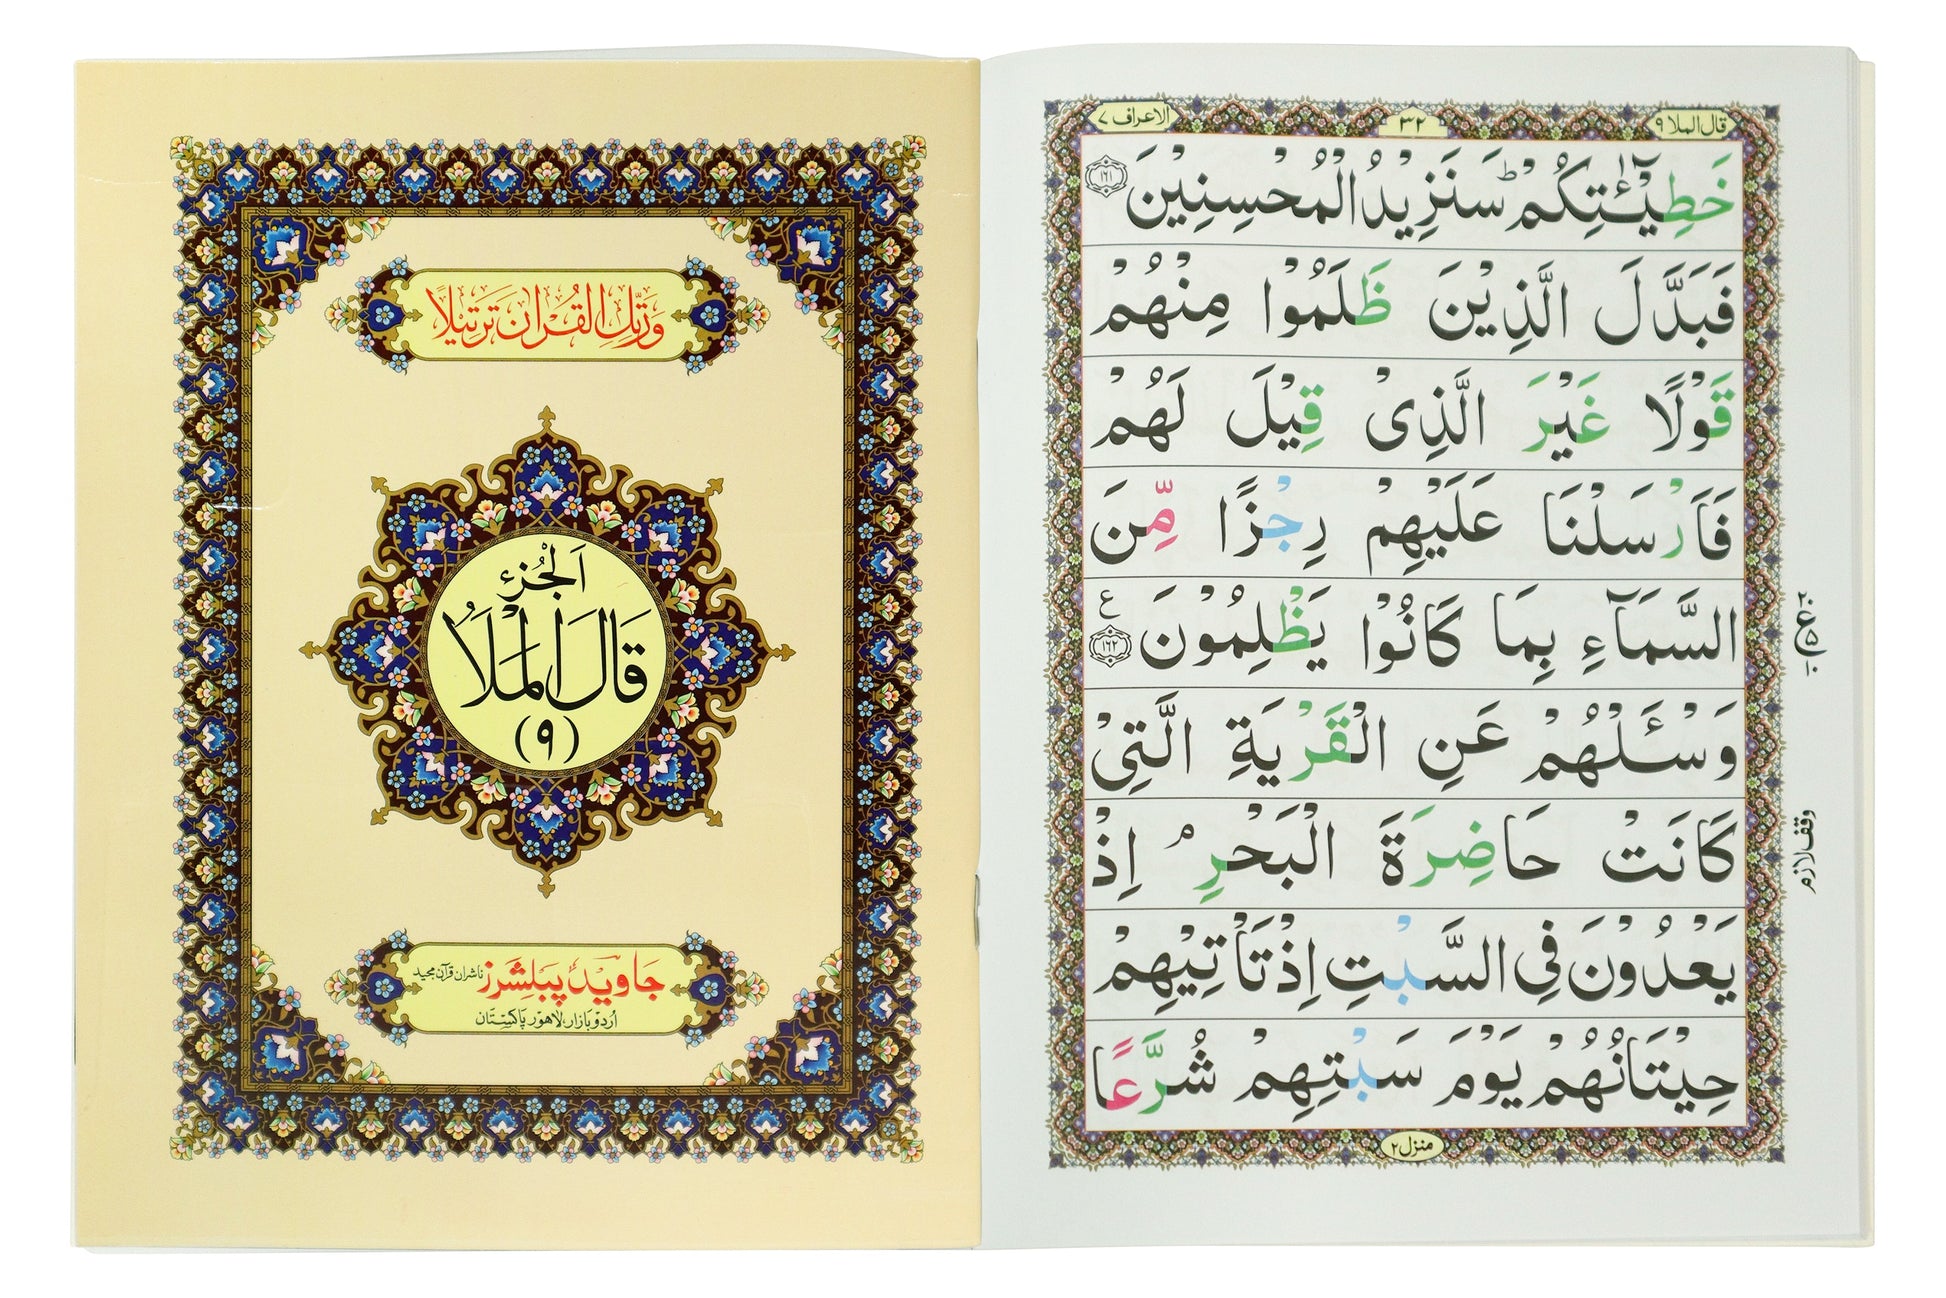 وَرَتِّلِ الْقُرْاٰنَ تَرْتِيْلًا
اَلْجُزءُ
قَالَ الْمَلَاُ
(۹)
جاوید پبلشرز ناشران قرآن مجید
اُردو بازار، لاہور پاکستان
قال الملا ۹
۳۲
الاعراف ۷
خَطِيْٓـٰٔتِكُمْ ؕ سَنَزِيْدُ الْمُحْسِنِيْنَ ۱۶۱
فَبَدَّلَ الَّذِيْنَ ظَلَمُوْا مِنْهُمْ
قَوْلًا غَيْرَ الَّذِىْ قِيْلَ لَهُمْ
فَاَرْسَلْنَا عَلَيْهِمْ رِجْزًا مِّنَ
السَّمَآءِ بِمَا كَانُوْا يَظْلِمُوْنَ ۱۶۲ ع
وَسْـَٔلْهُمْ عَنِ الْقَرْيَةِ الَّتِىْ
كَانَتْ حَاضِرَةَ الْبَحْرِ ۘ اِذْ
يَعْدُوْنَ فِى السَّبْتِ اِذْ تَاْتِيْهِمْ
حِيْتَانُهُمْ يَوْمَ سَبْتِهِمْ شُرَّعًا
منزل ۲
۲۰
ع ۵
۱۰
وقف لازم